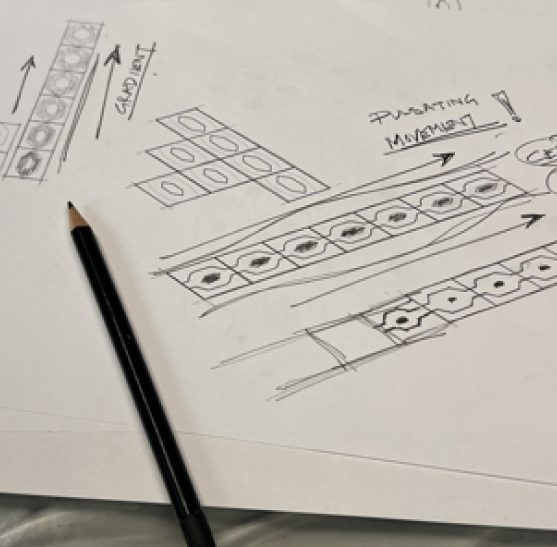 GRADIENT
PULSATING
MOVEMENT!